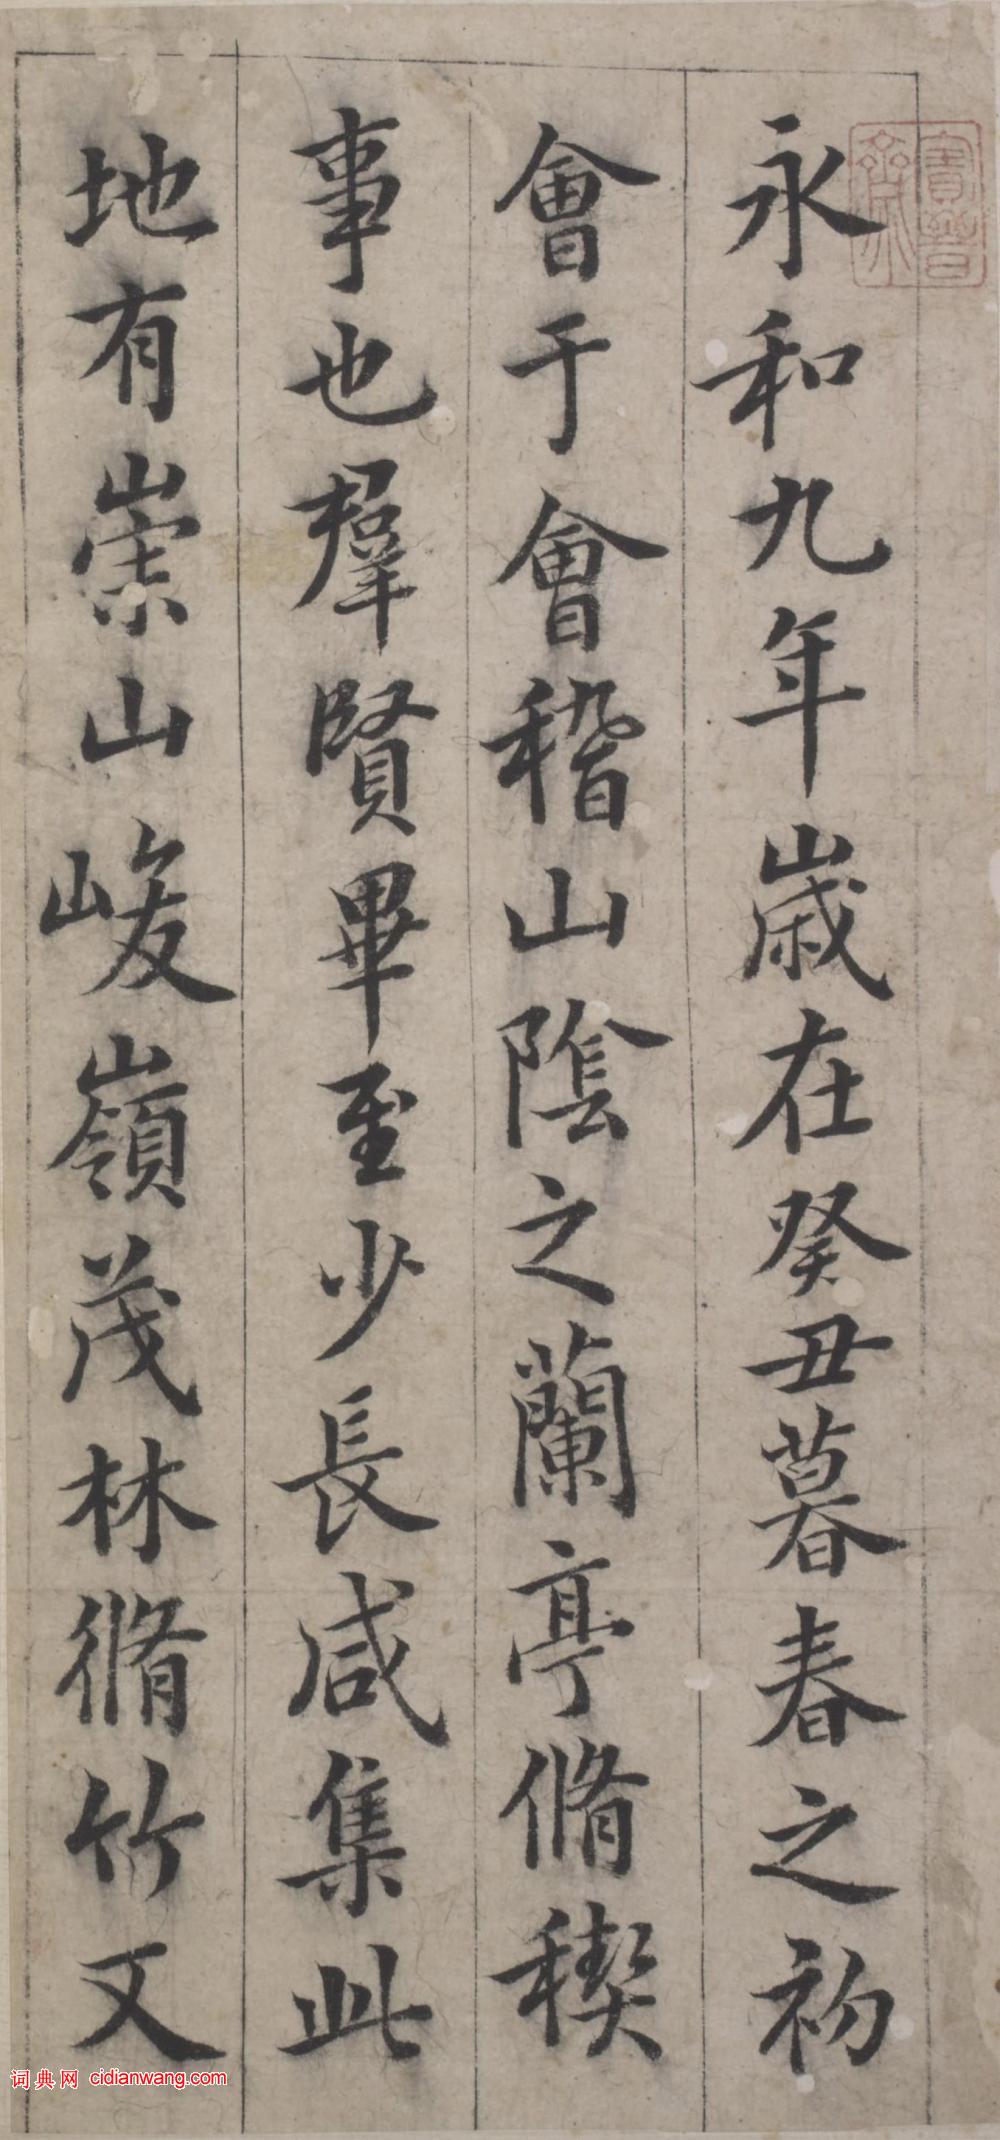 永和九年歲在癸丑暮春之初
會于會稽山陰之蘭亭脩稧
事也羣賢畢至少長咸集此
地有崇山峻嶺茂林脩竹又
寶晉齋
词典网 cidianwang.com